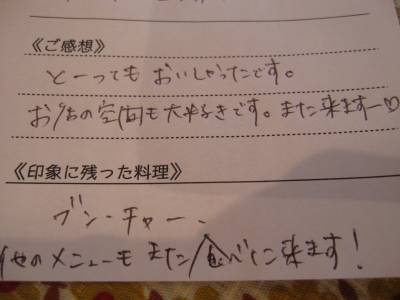 《ご感想》
とーっても おいしかったです。
お店の空間も大好きです。また来ますー♡
《印象に残った料理》
ブン・チャー、
他のメニューもまた食べに来ます!